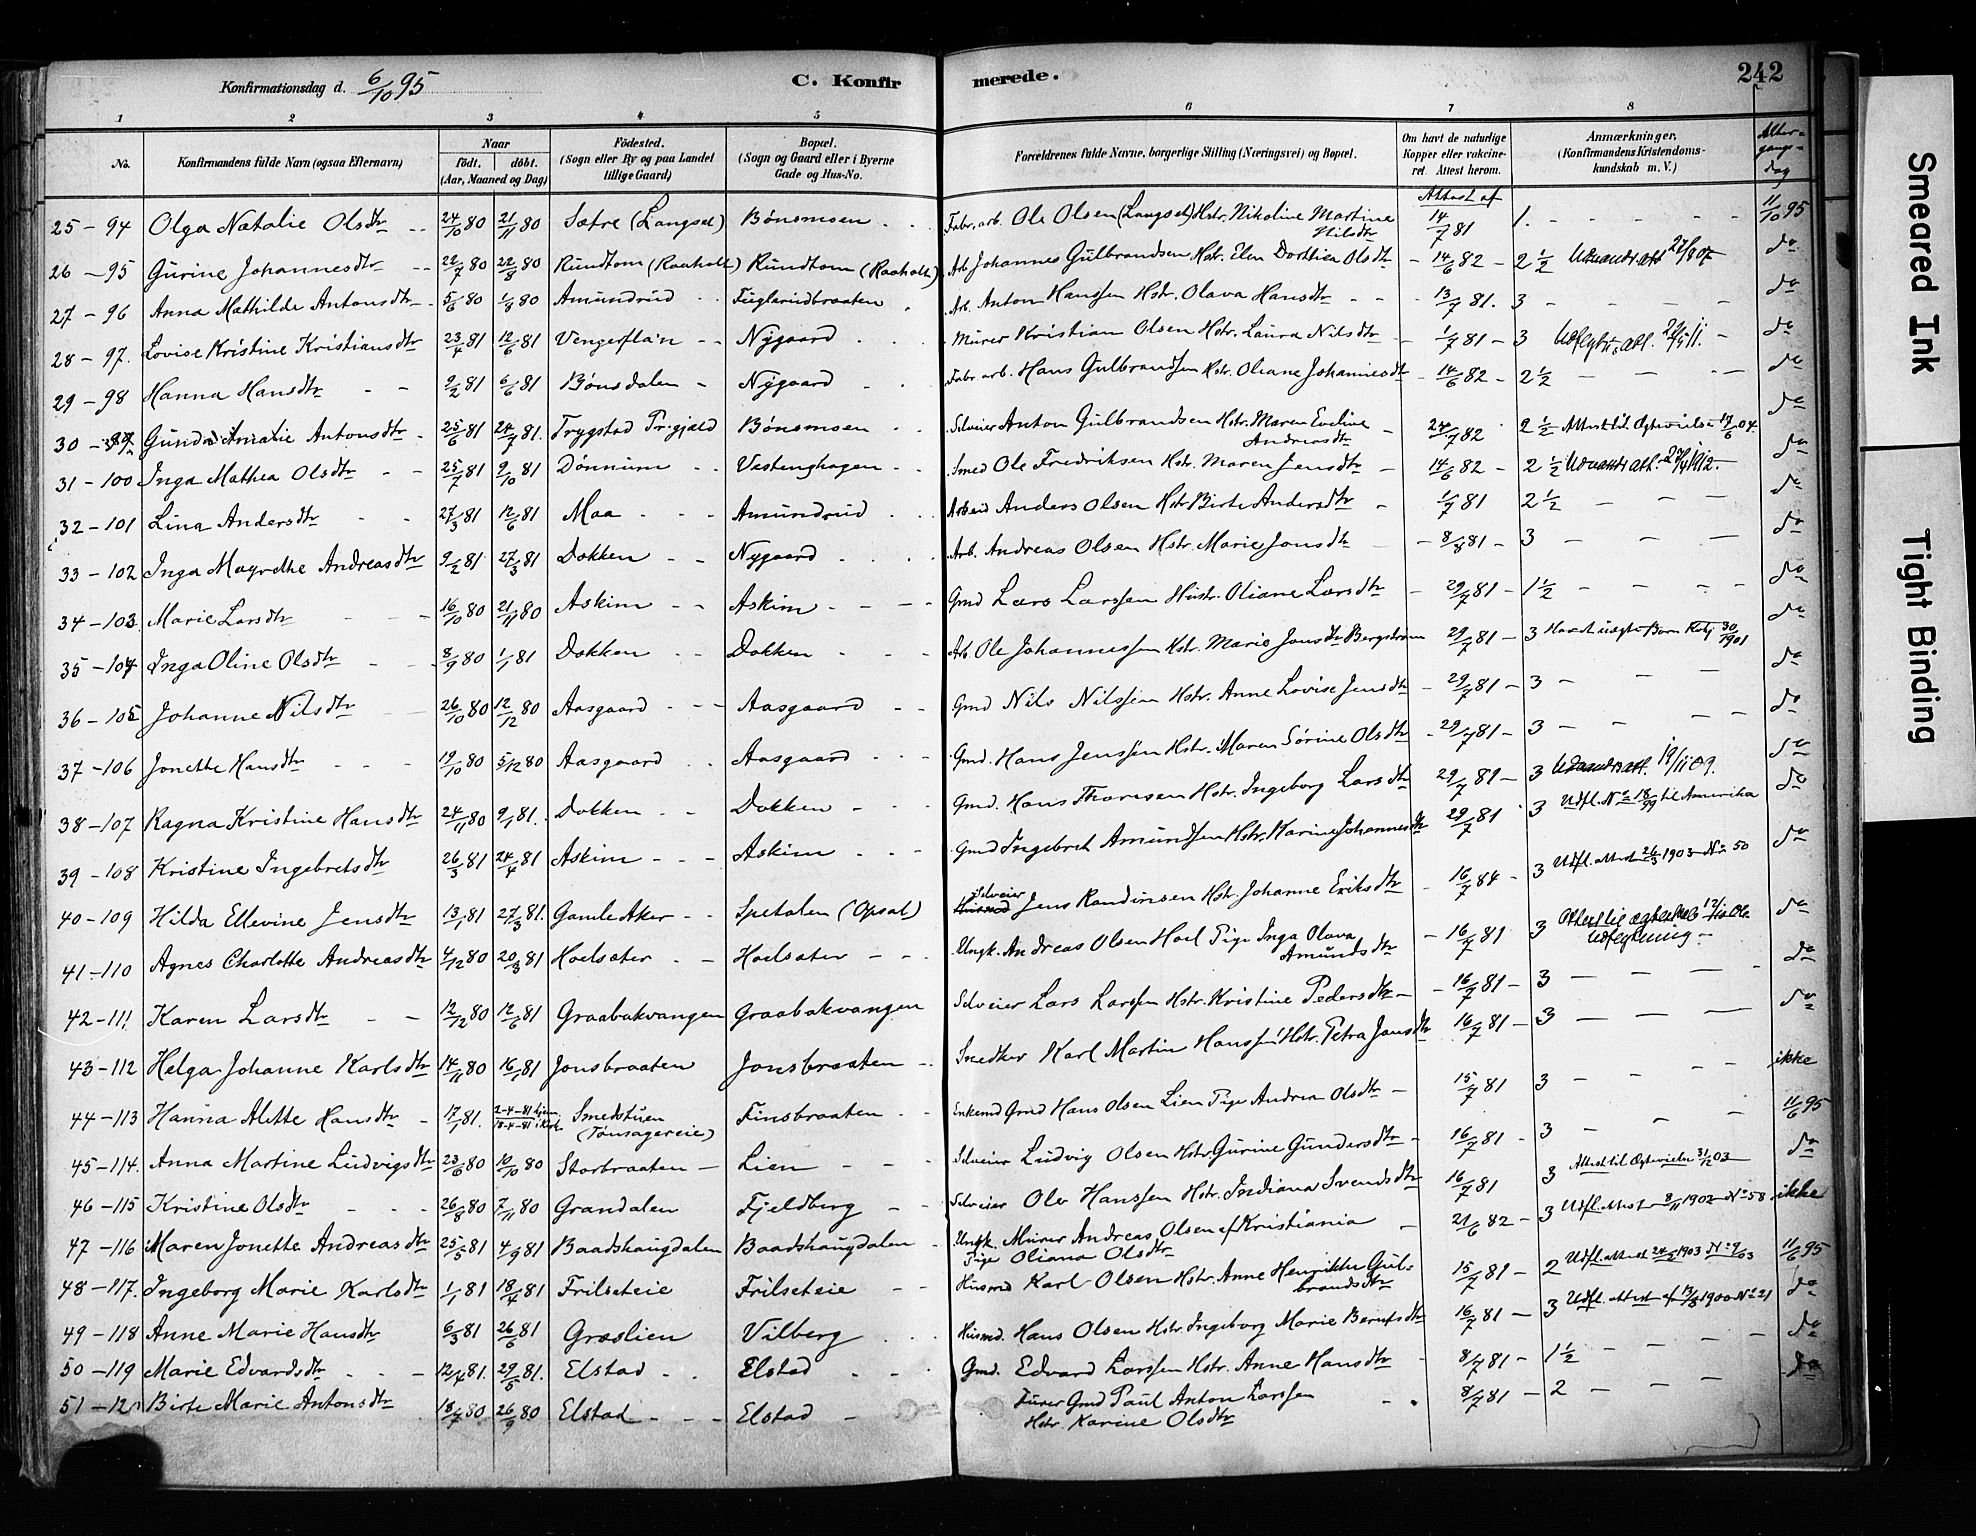 Konfirmationsdag d. 6/10 95
C. Konfirmerede.
242
1 2 3 4 5 6 7 8
No. Konfirmandens fulde Navn (ogsaa Efternavn) Naar født. døbt. (Aar, Maaned og Dag) Födested. (Sogn eller By og paa Landet tillige Gaard) Bopæl. (Sogn og Gaard eller i Byerne Gade og Hus-No. Forældrenes fulde Navne, borgerlige Stilling (Næringsvei) og Bopæl. Om havt de naturlige Kopper eller vakcineret. Attest herom. Anmærkninger. (Konfirmandens Kristendomskundskab m. V.) Altergangsdag
Attest af
25 - 94 Olga Natalie Olsdtr 24/10 80 21/11 80 Sætre (Langset) Bönsmoen Fabr. arb. Ole Olsen (Langset) Hstr. Nikoline Martine Nilsdtr 14/7 81 1. 11/10 95
26 - 95 Gurine Johannesdtr 22/7 80 22/8 80 Rundtom (Raaholt) Rundtom (Raaholt) Arb Johannes Gulbrandsen Hstr. Elen Dorthea Olsdtr 14/6 82 2 1/2 do
27 - 96 Anna Mathilde Antonsdtr 5/6 80 1/8 80 Amundrud Fuglerudbraaten Arb. Anton Hanssen Hstr. Olava Hansdtr 13/7 81. 3 do
28 - 97. Lovise Kristine Kristiansdtr 23/4 81 12/6 81 Nygaard Murer Kristian Olsen Hstr. Laura Nilsdtr 1/7 81 3 do
29 - 98 Hanna Hansdtr 2/2 81 6/6 81 Bönsdalen Nygaard Fabr arb. Hans Gulbrandsen Hstr. Oliane Johannesdtr 14/6 82 2 1/2 do
30 - 99 Amalie Antonsdtr 25/6 81 24/7 81. Trygstad Prgjæld Bönsmoen Selveier Anton Gulbrandsen Hstr. Maren Eveline Andreasdtr 24/7 82 2 1/2 do
31 - 100 Inga Mathea Olsdtr 25/7 81 9/10 81 Dönnum Vestenghagen Smed Ole Fredriksen Hstr. Maren Jensdtr 14/6 82 2 1/2 do
32 - 101 Lina Andersdtr 27/3 81 12/6 81 Maa Amundrud Arbeid Anders Olsen Hstr Birte Andersdtr 1/7 81 2 1/2 do
33 - 102 Inga Magrethe Andreasdtr 9/2 81 27/3 81 Dokken Nygaard Arb. Andreas Olsen Hstr. Marie Jonsdtr 8/8 81 3 do
34 - 103 Marie Larsdtr 16/10 80 21/11 80 Askim Askim Gmd Lars Larssen Hustr. Oliane Larsdtr 29/7 81 1 1/2 do
35 - 104 Inga Oline Olsdtr 8/9 80 1/1 81 Dokken Dokken Arb. Ole Johannessen Hstr. Marie Jonsdtr Bergström 29/7 81 3 do
36 - 105 Johanne Nilsdtr 26/10 80 12/12 80 Aasgaard Aasgaard Gmd Nils Nilssen Hstr. Anne Lovise Jensdtr 29/7 81 3 do
37 - 106 Jonette Hansdtr 19/10 80 5/12 80 Aasgaard Aasgaard Gmd. Hans Jenssen Hstr. Maren Sörine Olsdtr 29/7 81 3 do
38 - 107 Ragna Kristine Hansdtr 24/11 80 9/1 81. Dokken Dokken Gmd. Hans Thoresen Hstr. Ingeborg Larsdtr 29/7 81 3 19/11 09. do
39 - 108 Kristine Ingebretsdtr 26/3 81 24/4 81 Askim Askim Gmd Ingebret Amundsen Hstr. Karine Johannesdtr 29/7 81 3 Udfl. No 18/99 til Amerika do
40 - 109 Hilda Ellevine Jensdtr 13/1 81 27/3 81. Gamle Aker Spetalen (Opsal) Selveier Jens Randinsen Hstr. Johanne Eriksdtr 16/7 84 3 Udfl. attest 26/3 1903 No 50 do
41 - 110 Agnes Charlotte Andreasdtr 4/12 80 20/3 81 Hoelsæter Hoelsæter Ungk. Andreas Olsen Hoel Pige Inga Olava Amundsdtr 16/7 81 3 Udflytning do
42 - 111 Karen Larsdtr 12/12 80 12/6 81 Graabakvangen Graabakvangen Selveier Lars Larssen Hstr. Kristine Pedersdtr 16/7 81 3 do
43 - 112 Helga Johanne Karlsdtr 14/11 80 16/1 81 Jonsbraaten Jonsbraaten Snedker Karl Martin Hanssen Hstr. Petra Jansdtr 16/7 81 3 do
44 - 113 Hanna Alette Hansdtr 17/1 81. 2-4-81 hjem. 18-4-81 i Kirk. Smedstuen (Tönsagereie) Finsbraaten Enkemd Gmd Hans Olsen Lien Pige Andrea Olsdtr 15/7 81 3 ikke
45 - 114. Anna Martine Ludvigsdtr 23/6 80 10/10 80 Storbraaten Lien Selveier Ludvig Olsen Hstr. Gurine Gundersdtr 16/7 81 3 11/6 95
46 - 115 Kristine Olsdtr 26/8 80 7/11 80 Grandalen Fjeldberg Selveier Ole Hanssen Hstr. Indiana Svendsdtr 16/7 81 3 Attest til Ægtevielse 31/12 03 do
47 - 116 Maren Jonette Andreasdtr 25/5 81 4/9 81 Baadshaugdalen Baadshaugdalen Ungk. Murer Andreas Olsen af Kristiania Pige Oliana Olsdtr 21/6 82 3 Udfl. Attest 8/11 1902 No 58 ikke
48 - 117. Ingeborg Marie Karlsdtr 1/1 81 18/4 81 Frilseteie Frilseteie Husmd Karl Olsen Hstr. Anne Henrikke Gulbrandsdtr 15/7 81 2 Udfl. attest 24/2 1903 No 9/03 11/6 95
49 - 118 Anne Marie Hansdtr 6/3 81 26/6 81 Græslien Vilberg Husmd. Hans Olsen Hstr. Ingeborg Marie Berntsdtr 16/7 81 3 Udfl. attest af 13/3 1900 No 21 do
50 - 119 Marie Edvardsdtr 12/4 81. 29/5 81. Elstad Elstad Gmd. Edvard Larssen Hstr. Anne Hansdtr 8/7 81 1 1/2 do
51 - 12 Birte Marie Antonsdtr 18/7 80 26/9 80 Elstad Elstad Furer Gmd Paul Anton Larssen Hstr. Karine Olsdtr 8/7 81 2 do
Smeared Ink
Tight Binding